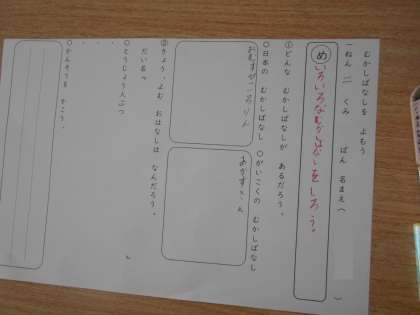 むかしばなしを よもう
一ねん 二 くみ ばん 名まえ（ ）
め いろいろなむかしばなしをしろう。
①どんな むかしばなしが あるだろう。
○日本の むかしばなし ○がいこくの むかしばなし
おむすびころりん
おおかみさん
②きょう、よむ おはなしは なんだろう。
だい名へ
○とうじょう人ぶつ
・
・
・
○かんそうを かこう。